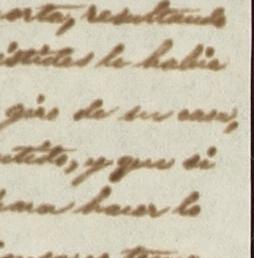 orta, resultando
istides le habia
giro de su casa,
ntido, y que si
hacer lo